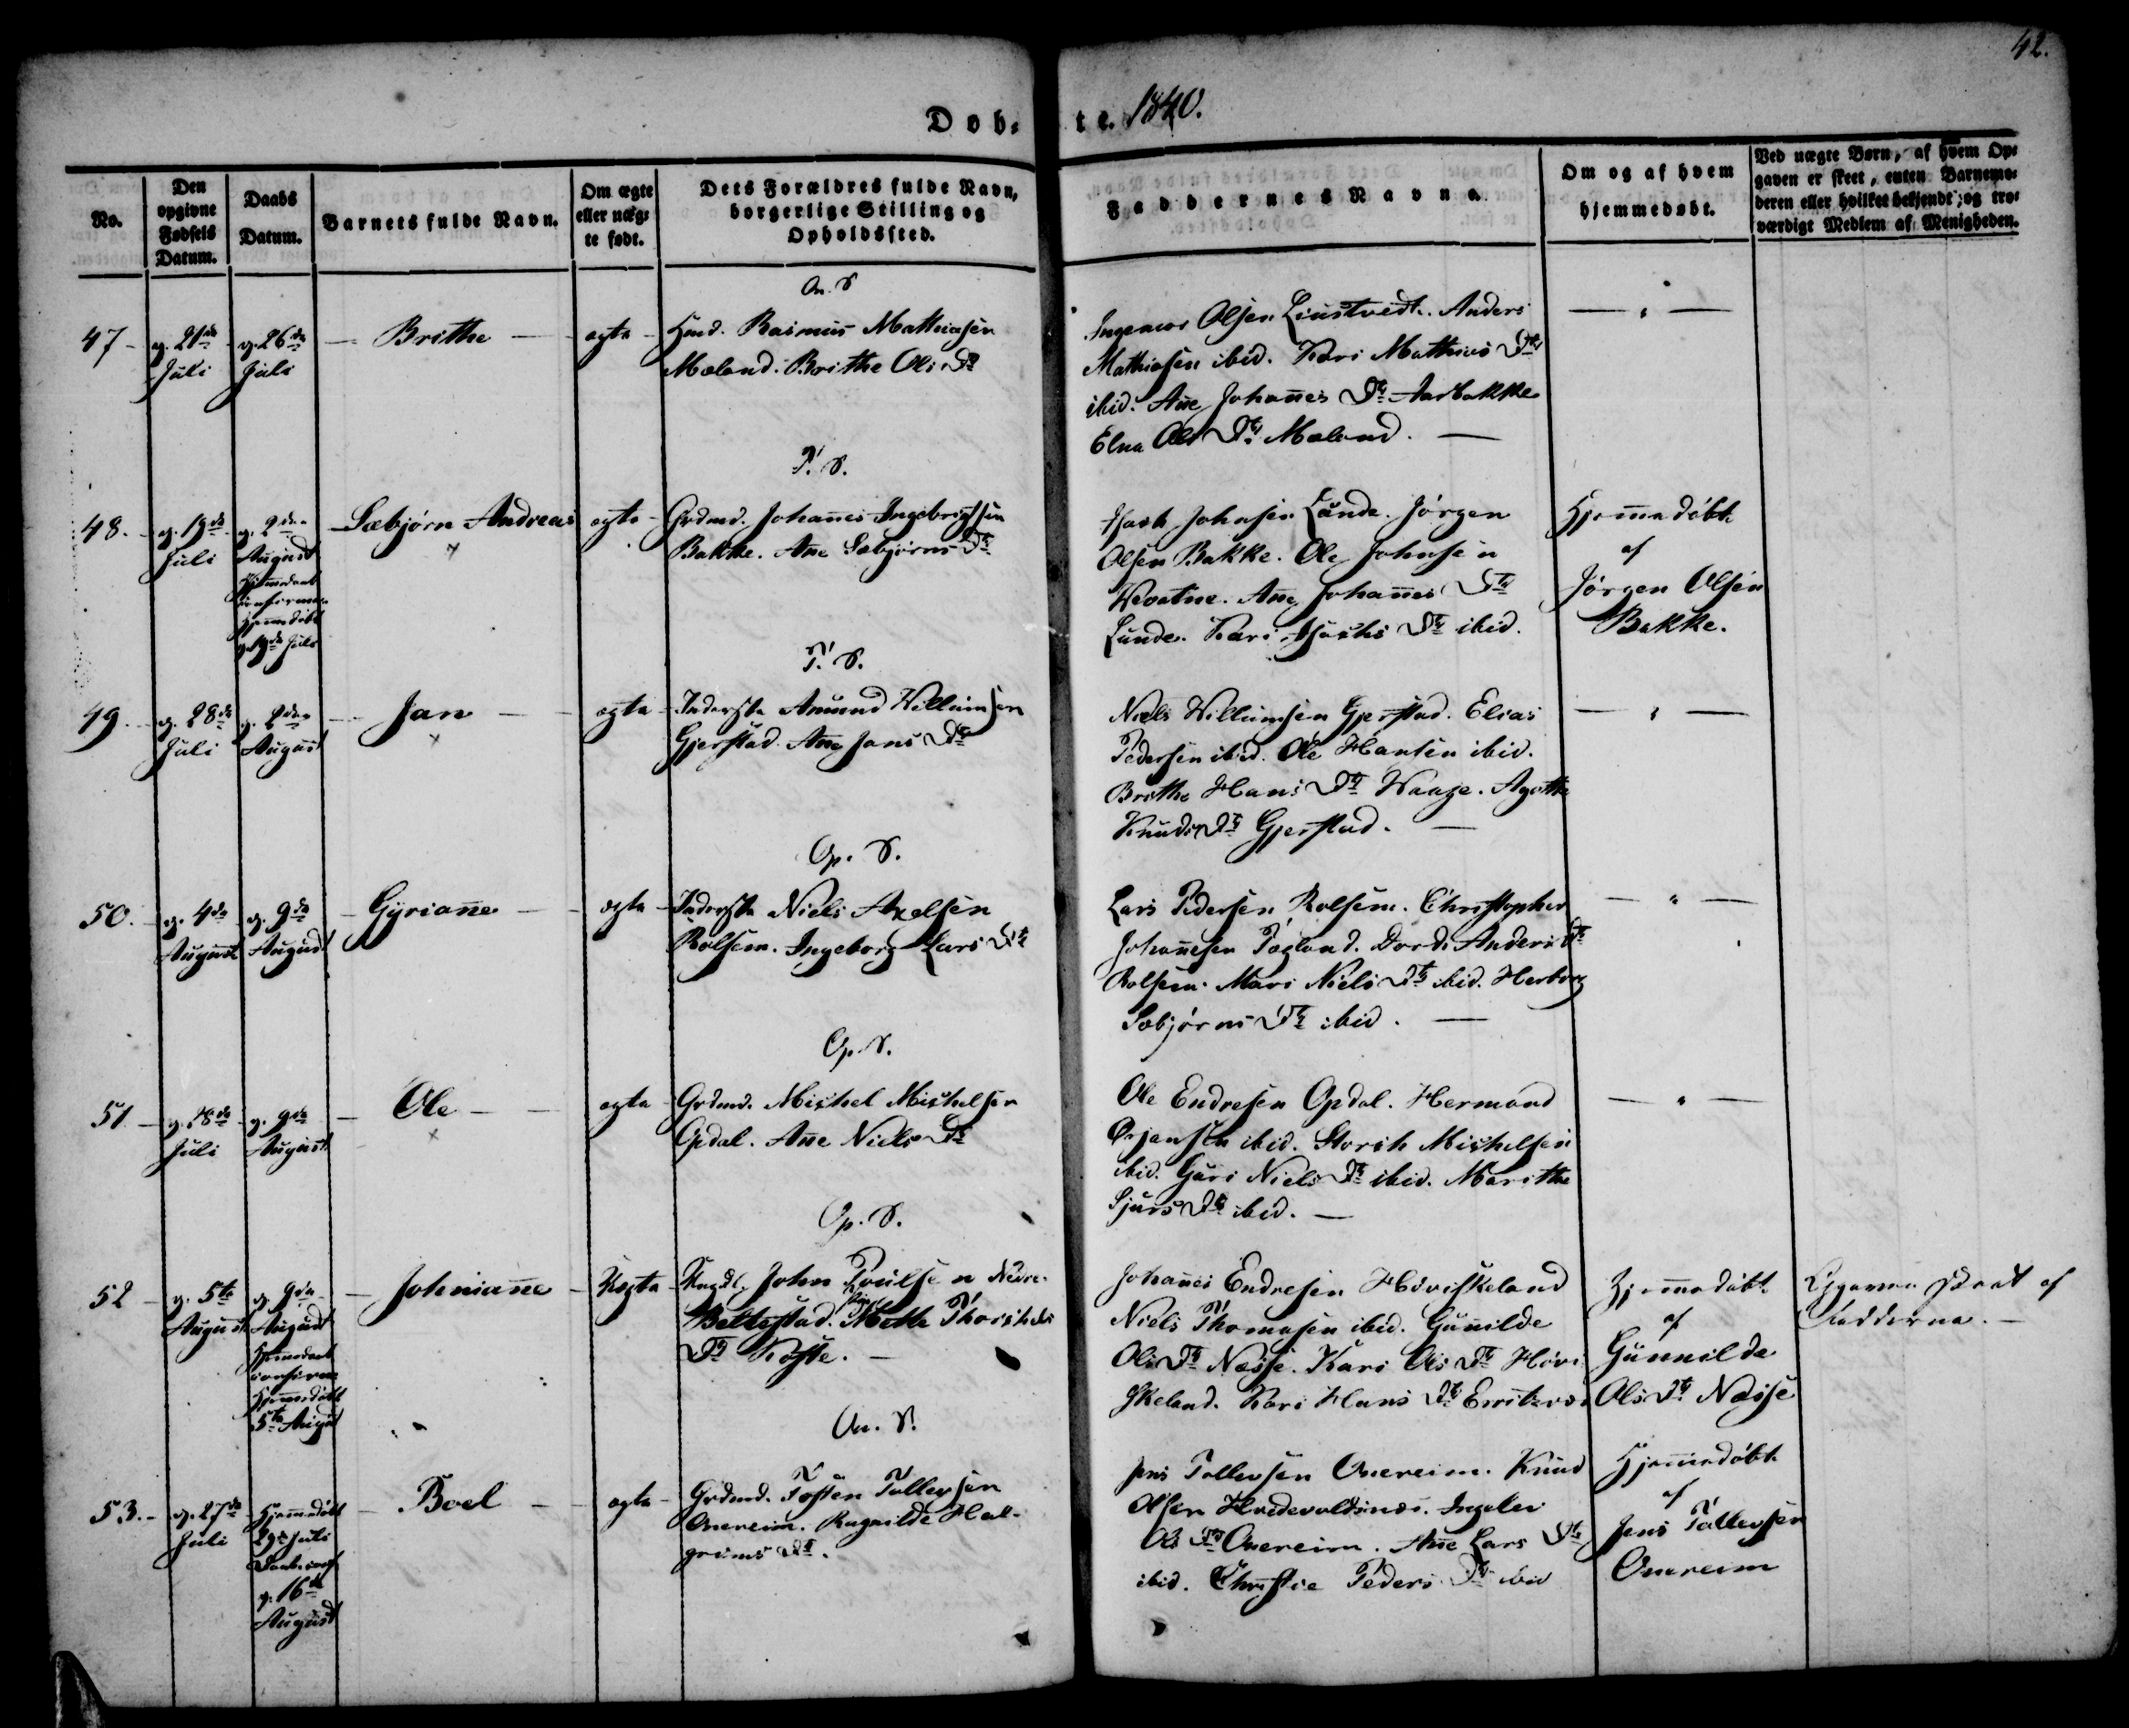 42.
Døb-
te. 1840.
No.
Den
opgivne
Fødsels
Datum.
Daabs
Datum.
Barnets fulde Navn.
Om ægte
eller uæg-
te født.
Dets Forældres fulde Navn,
borgerlige Stilling og
Opholdssted.
Faddernes Navne.
Om og af hvem
hjemmedøbt.
Ved uægte Børn, af hvem Op-
gaven er skeet, enten Barnemo-
deren eller hvilket bekjendt, og tro-
værdigt Medlem af Menigheden.
On. S
47 -
d. 21de
Juli
d. 26de
Juli
Brithe
ægte
Huusmd. Rasmus Mathiasen
Mæland. Brithe Ols Dtr
Olsen Liustvedt. Anders
Mathiasen ibid. Kari Mathias Dtr
ibid. Ane Johanes Dtr Aarbakke
Elna Ols Dtr Mæland.
T. S.
48.
d. 19de
Juli
d. 2den
August
hjemmedøbt
d. 19de Juli
Sæbjørn Andreas
ægte
Grdmd. Johanes Ingebrigtsen
Bakke. Ane Sæbjørns Dtr
Isach Johnsen Lunde. Jørgen
Olsen Bakke. Ole Johnsen
Wevatne. Ane Johanes Dtr
Lunde. Kari Isachs Dtr ibid.
Hjemmedøbt
af
Jørgen Olsen
Bakke.
T. S.
49.
d. 28de
Juli
d. 2den
August
Jan
ægte
Inderste Amund Willumsen
Gjerstad. Ane Jans Dtr
Niels Willumsen Gjerstad. Elias
Pedersen ibid. Ole Hansen ibid.
Brithe Hans Dtr Waage. Agathe
Knuds Dtr Gjerstad.
Op. S.
50.
d. 4de
August
d. 9de
August
Gyriane
ægte
Inderste Niels Axelsen
Rolsem. Ingeborg Lars Dtr
Lars Pedersen Rolsem. Christopher
Johanesen Tegland. Dorde Anders Dtr
Rolsem. Mari Niels Dtr ibid. Herborg
Sæbjørns Dtr ibid.
Op. S.
51
d. 18de
Juli
d. 9de
August
Ole
ægte
Grdmd. Michel Michelsen
Opdal. Ane Niels Dtr
Ole Endresen Opdal. Hermand
Ørjansen ibid. Storch Michelsen
ibid. Guri Niels Dtr ibid. Marithe
Sjurs Dtr ibid.
Op. S.
52
d. 5te
August
d. 9de
August
hjemmedøbt
5te August
Johniane
Uægte
John Poulsen Nedre-
Bellestad. Mette Thorchels
Dtr Tofte.
Johanes Endresen Høviskeland
Niels Thomasen ibid. Gunilde
Ols Dtr Næsse. Kari Ols Dtr Høvi
skeland. Kari Hans Dtr
Hjemmedøbt
af
Gunnilde
Ols Dtr Næsse
Opgaven skeet af
Fadderne.
On. S.
53.
d. 27de
Juli
Hjemmedøbt
29de Juli
d. 16de
August
Boel
ægte
Grdmd. Tosten Tollevsen
Onereim. Ragnilde Hal-
grims Dtr.
Jens Tollevsen Onereim. Knud
Olsen Hvedevoldsnæs. Ingelev
Ols Dtr Onereim. Ane Lars Dtr
ibid. Christie Peders Dtr ibid
Hjemmedøbt
af
Jens Tollevsen
Onereim